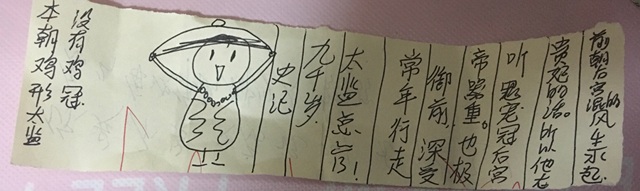 前朝后宫混的风生水起.
贵妃的活。所以他在
听恩宠冠后宫
帝器重。也极
御前,深受
常年行走
太监总管!
九千岁.
史记
没有鸡冠
本朝鸡形太监